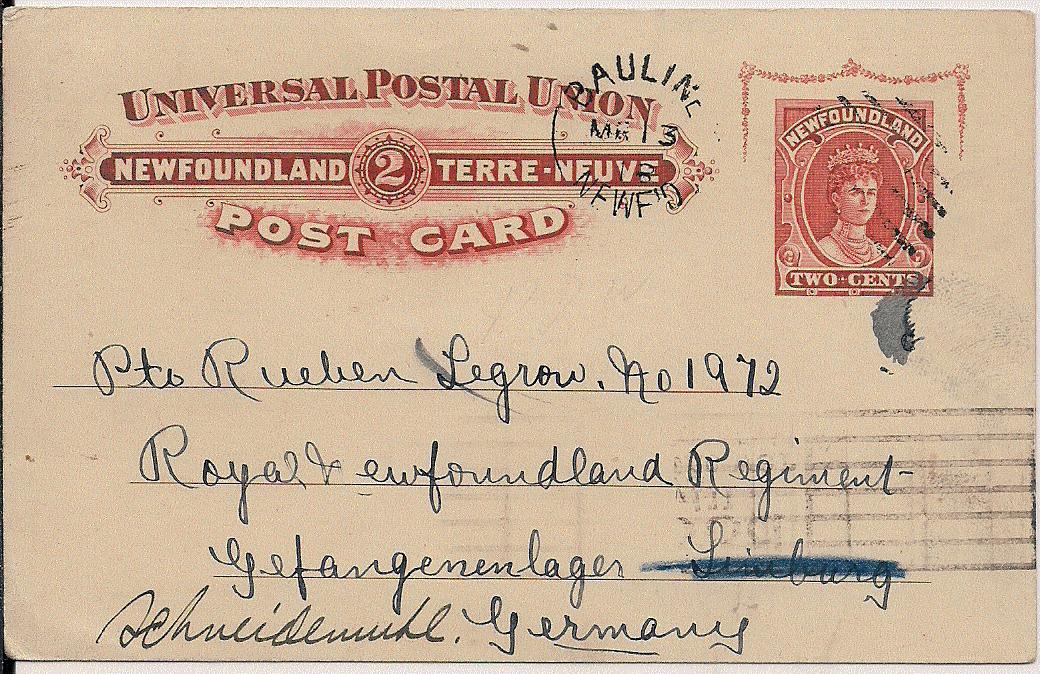 UNIVERSAL POSTAL UNION
NEWFOUNDLAND 2 TERRE-NEUVE
POST CARD
BAULINE
MR 13
18
NEWF'D
NEWFOUNDLAND
TWO CENTS
Pte Rueben Legrow. No 1972
Royal Newfoundland Regiment
Gefangenenlager Limburg
Schneidemuhl. Germany